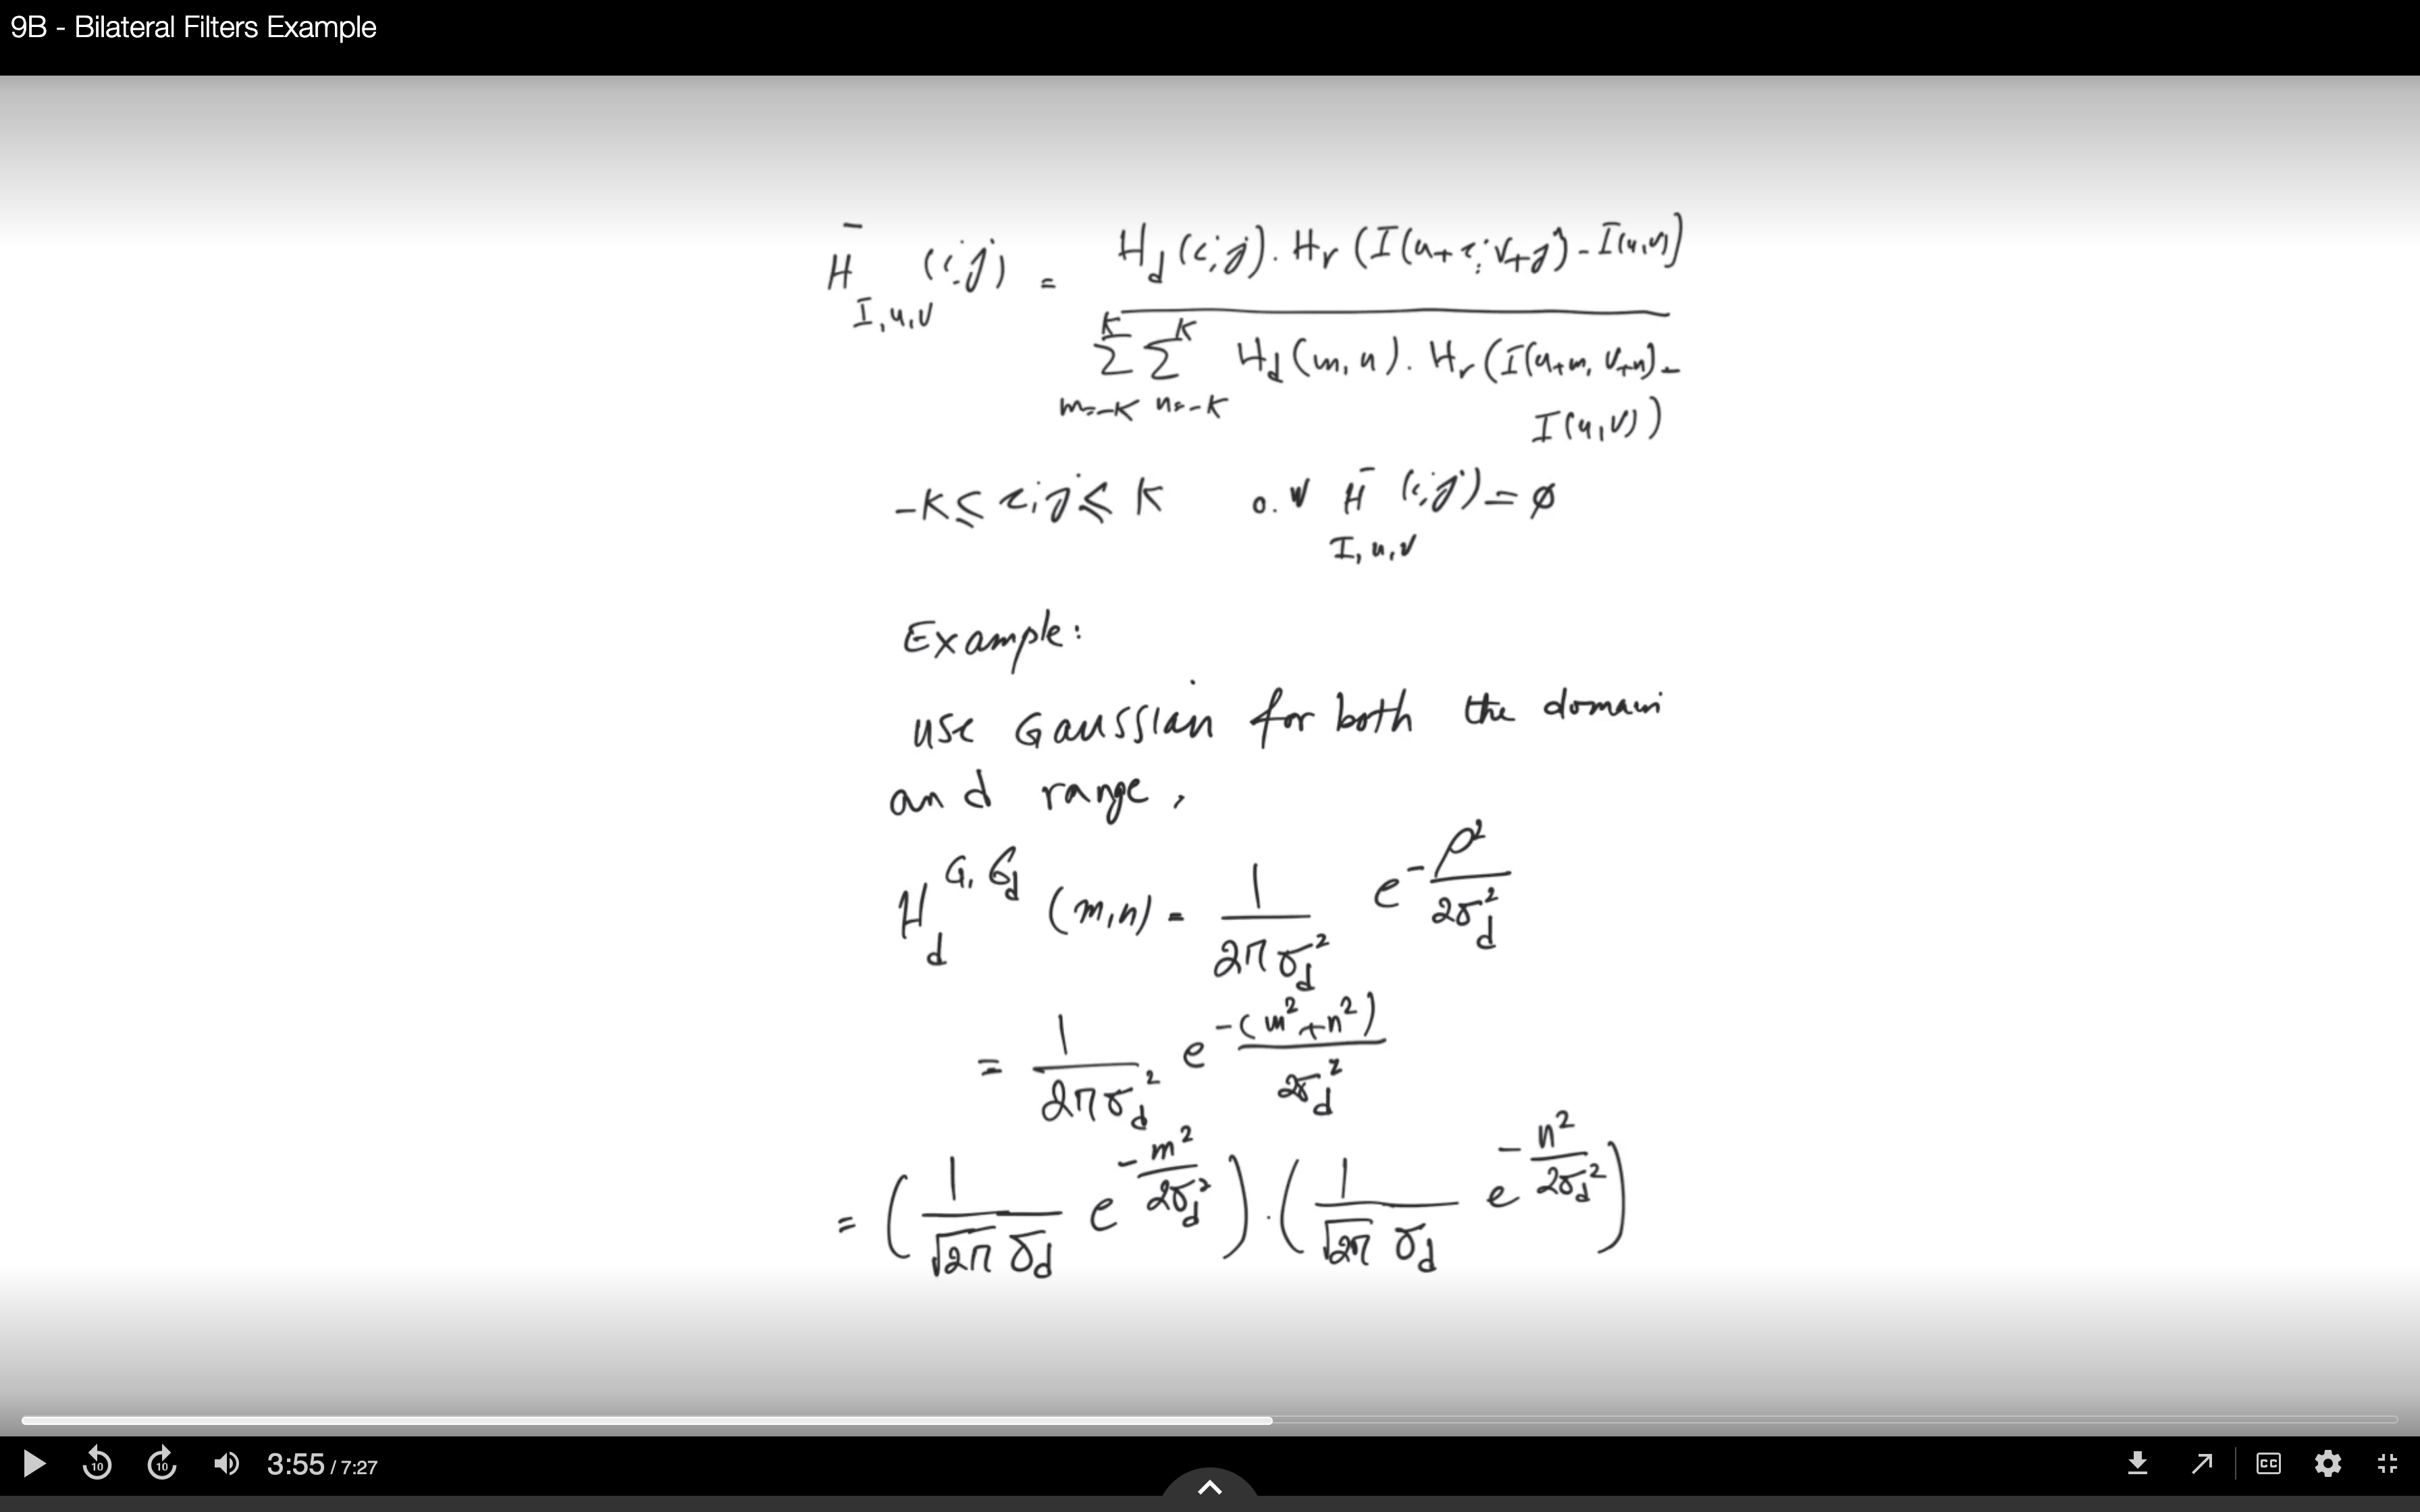 9B - Bilateral Filters Example
H̄_{I,u,v} (i,j) = H_d (i,j) . H_r (I(u+i, v+j) - I(u,v)) / Σ_{m=-K}^{K} Σ_{n=-K}^{K} H_d (m,n) . H_r (I(u+m, v+n) - I(u,v))
-K ≤ i,j ≤ K o.w H̄_{I,u,v} (i,j) = ∅
Example:
use Gaussian for both the domain
and range,
H_d^{G,σ_d} (m,n) = 1/(2πσ_d^2) e^{-ρ^2/(2σ_d^2)}
= 1/(2πσ_d^2) e^{-(m^2+n^2)/(2σ_d^2)}
= (1/(√2π σ_d) e^{-m^2/(2σ_d^2)}) . (1/(√2π σ_d) e^{-n^2/(2σ_d^2)})
10 10 3:55 / 7:27 CC